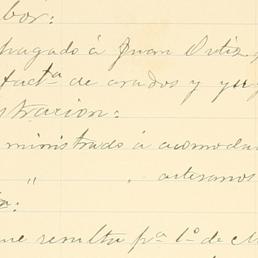 bor:
pagado á Juan Ortiz
fact.a de arados y yu
stracion:
ministrado á acomoda
" " artesanos
a:
ue resulta p.a 1.o de M